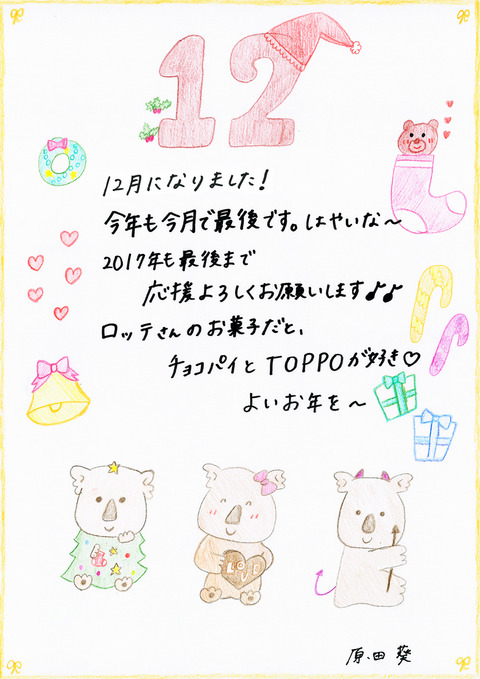 12
12月になりました!
今年も今月で最後です。はやいな～
2017年も最後まで
応援よろしくお願いします♪♪
ロッテさんのお菓子だと、
チョコパイとTOPPOが好き♡
よいお年を～
LOVE
原田 葵